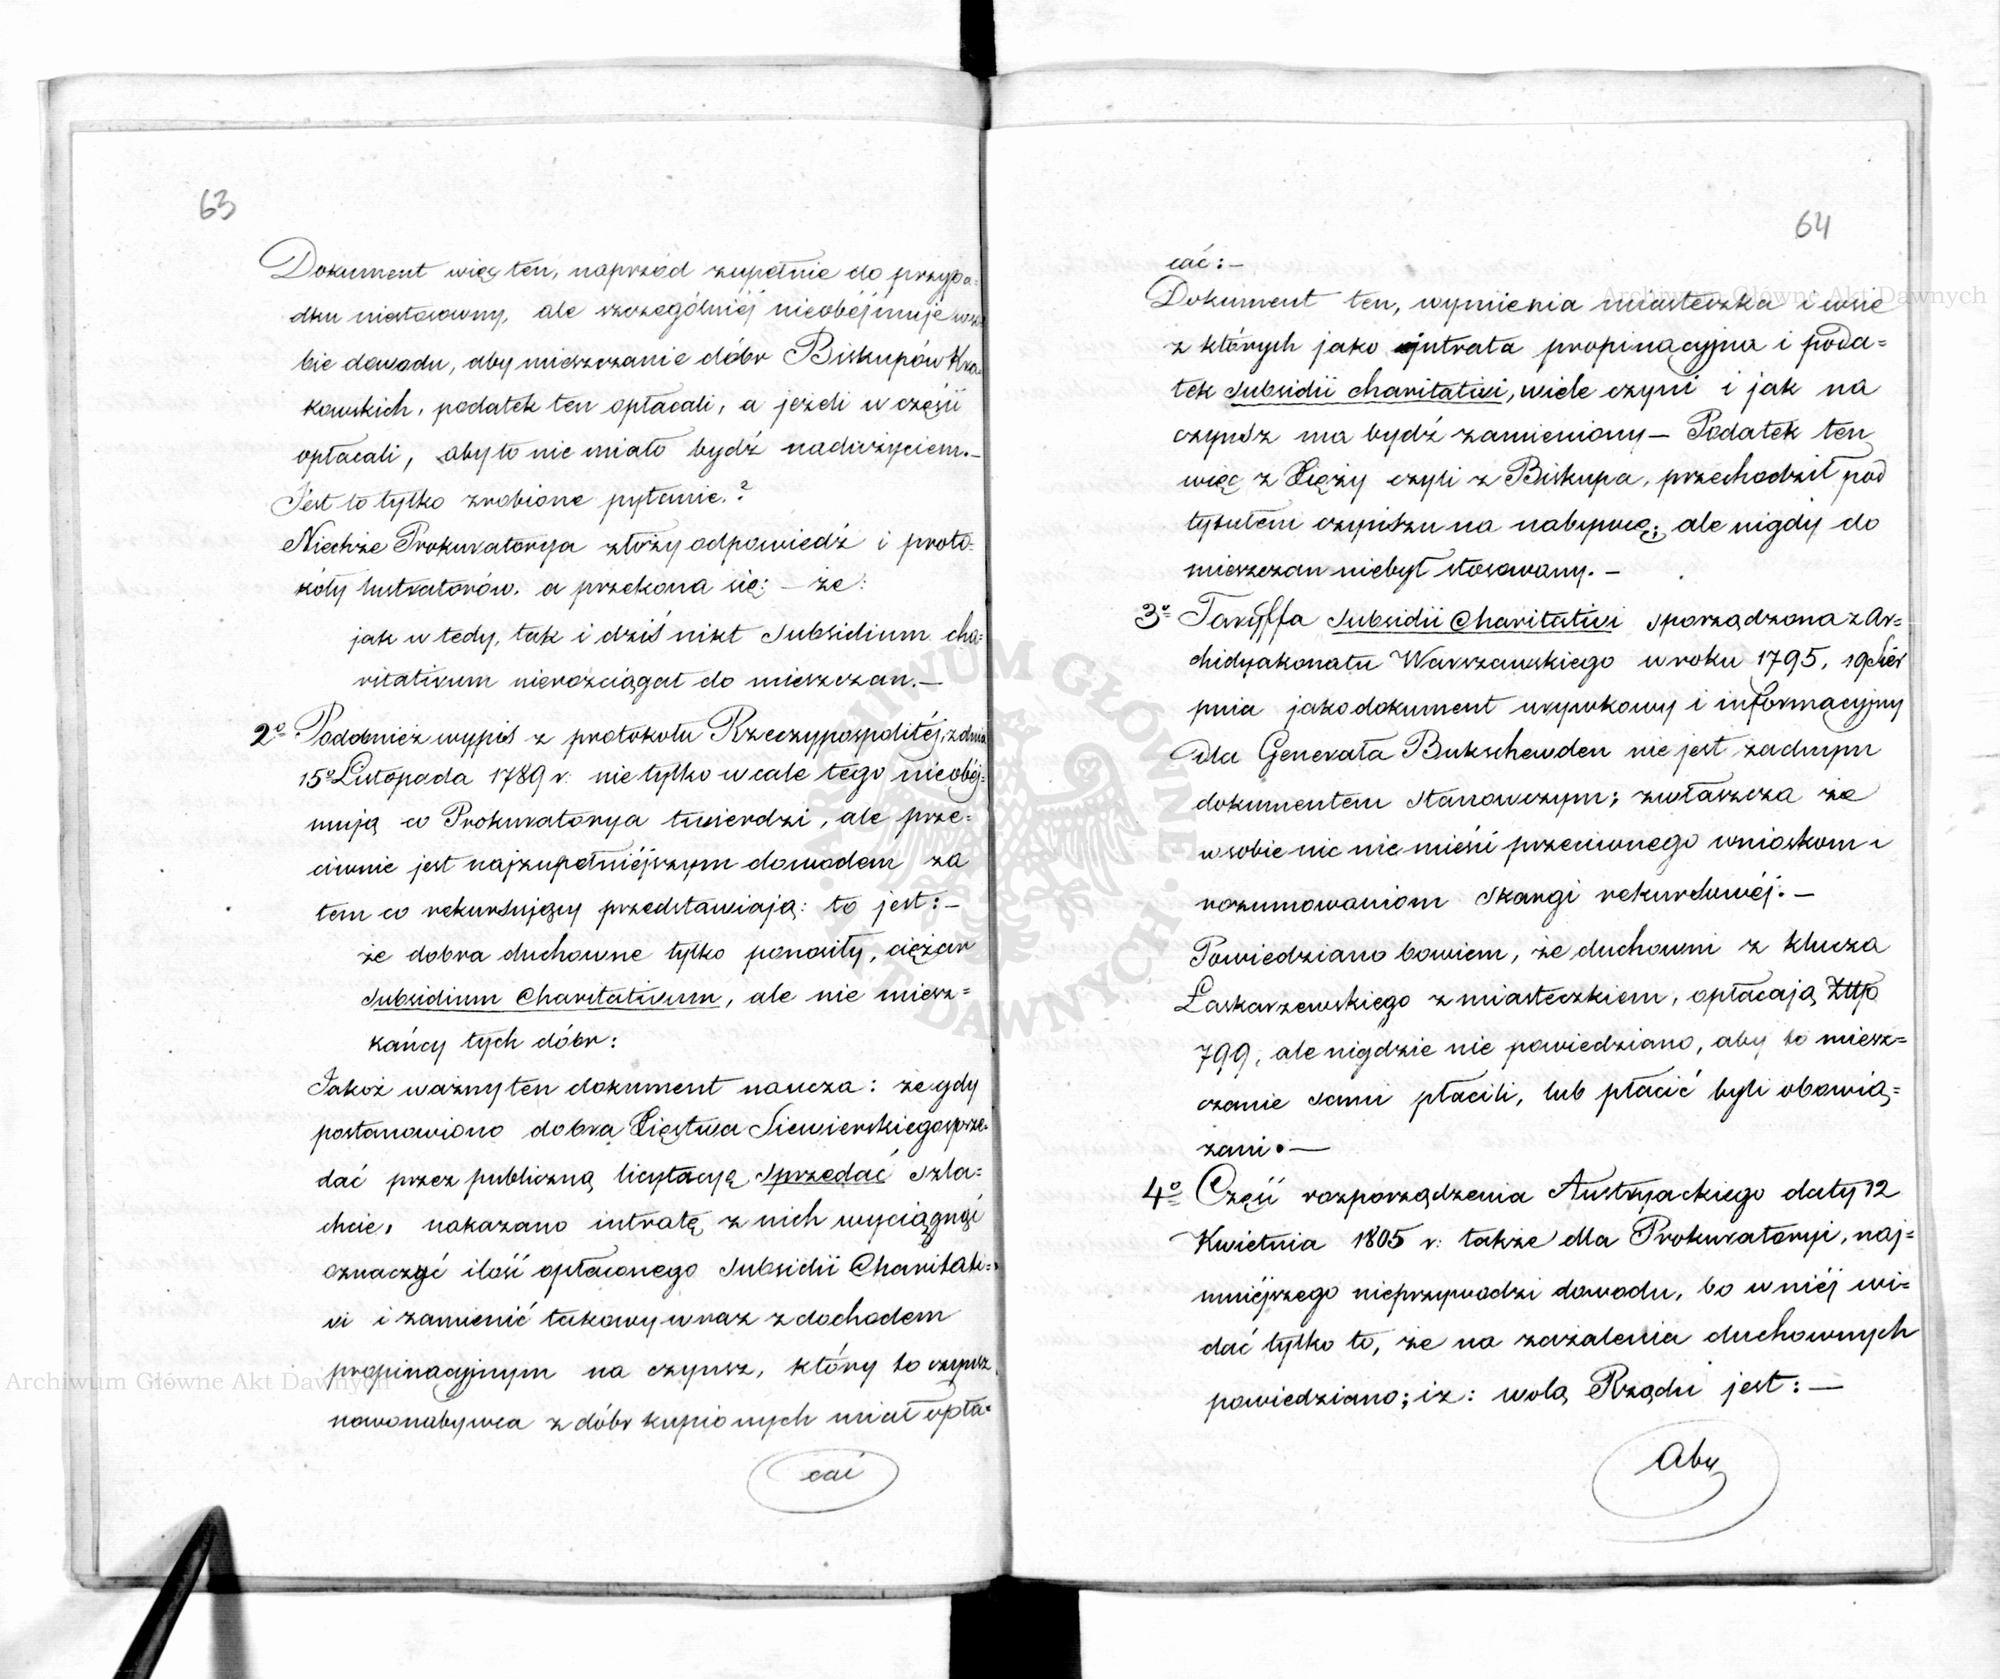 63
Dokument więc ten, naprzód zupełnie do przypa-
dku niestosowny, ale szczególniéj nieobéjmuje w so-
bie dowodu, aby mieszczanie dóbr Biskupów Kra-
kowskich, podatek ten opłacali, a jeżeli w części
opłacali, aby to nie miało bydź nadużyciem.—
Jest to tylko zrobione pytanie.?
Niechże Prokuratorya złoży odpowiedź i proto-
kóły lustratorów. a przekona się: — że:
jak wtedy, tak i dziś nikt Subsidium cha=
ritativum nierozciągał do mieszczan.—
2o Podobnież wypis z protokołu Rzeczypospolitéj, z dnia
15o Listopada 1789 r. nie tylko wcale tego nieobéj-
mują co Prokuratorya twierdzi, ale prze=
ciwnie jest najzupełniéjszym dowodem za
tem co rekursujący przedstawiają: to jest:—
że dobra duchowne tylko ponosiły, ciężar
Subsidium Charitativum, ale nie miesz=
kańcy tych dóbr:
Jakoż ważny ten dokument naucza: że gdy
postanowiono dobra Xięstwa Siewierskiego sprze-
dać przez publiczną licytacyą sprzedać szla=
chcie, nakazano intratę z nich wyciągnąć
oznaczyć ilość opłaconego Subsidii Charitati=
vi i zamienić takowy wraz z dochodem
propinacyjnym na czynsz, który to czynsz
nowonabywca z dóbr kupionych miał opła=
cać
64
cać:—
Dokument ten, wymienia miasteczka i wsie
z których jako intrata propinacyjna i poda=
tek Subsidii charitativi, wiele czyni i jak na
czynsz ma bydź zamieniony— Podatek ten
więc z Xięży czyli z Biskupa, przechodził pod
tytułem czynszu na nabywcę; ale nigdy do
mieszczan niebył stosowany.—
3o Taryffa Subsidii Charitativi sporządzona z Ar=
chidyakonatu Warszawskiego w roku 1795, 19 Sier
pnia jako dokument urywkowy i informacyjny
dla Generała Bukschewden nie jest żadnym
dokumentem stanowczym; zwłaszcza że
w sobie nic nie mieści przeciwnego wnioskom i
rozumowaniom skargi rekursowéj.—
Powiedziano bowiem, że duchowni z klucza
Łaskarzewskiego z miasteczkiem, opłacają Złtp
799, ale nigdzie nie powiedziano, aby to miesz=
czanie sami płacili, lub płacić byli obowią=
zani.—
4o Część rozporządzenia Austryackiego daty 12
Kwietnia 1805 r: także dla Prokuratoryi, naj=
mniéjszego nieprzywodzi dowodu, bo w niéj wi=
dać tylko to, że na zażalenia duchownych
powiedziano; iż: wolą Rządu jest:—
Aby
Archiwum Główne Akt Dawnych
Archiwum Główne Akt Dawnych
ARCHIWUM GŁÓWNE AKT DAWNYCH